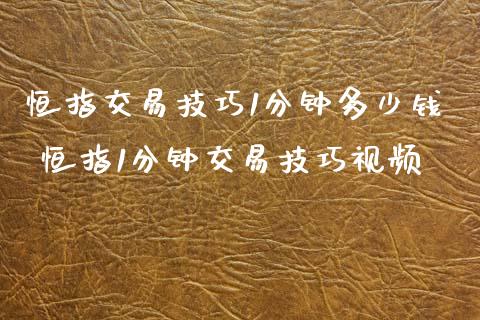 恒指交易技巧1分钟多少钱
恒指1分钟交易技巧视频